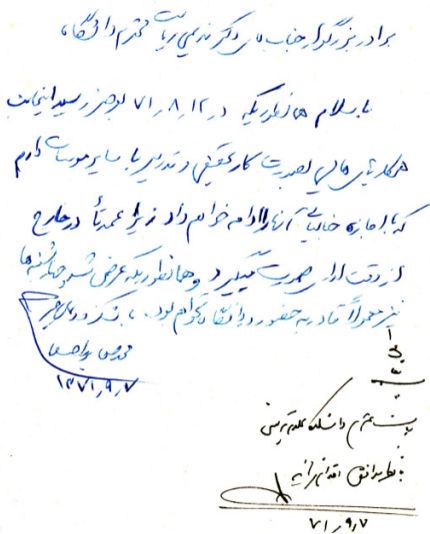 برادر بزرگوار جناب آقای دکتر ندیمی ریاست محترم دانشگاه
با سلام همانطوریکه در ۷۱٫۸٫۱۲ بعرض رسید اینجانب
همکاریهای بصورت کار تحقیقی و تدریس با سایر موسسات دارم
که با اجازه جنابعالی آنها را ادامه خواهم داد زیرا عمدتاً در خارج
از وقت اداری صورت میگیرد و همانطوریکه عرض شد چهارشنبه‌ها
نیز معمولاً قادر به حضور در دانشگاه نخواهم بود. با تشکر
۱۳۷۱٫۹٫۷
ریاست محترم دانشکده
با نظر موافق اقدام فرمائید
۷۱٫۹٫۷